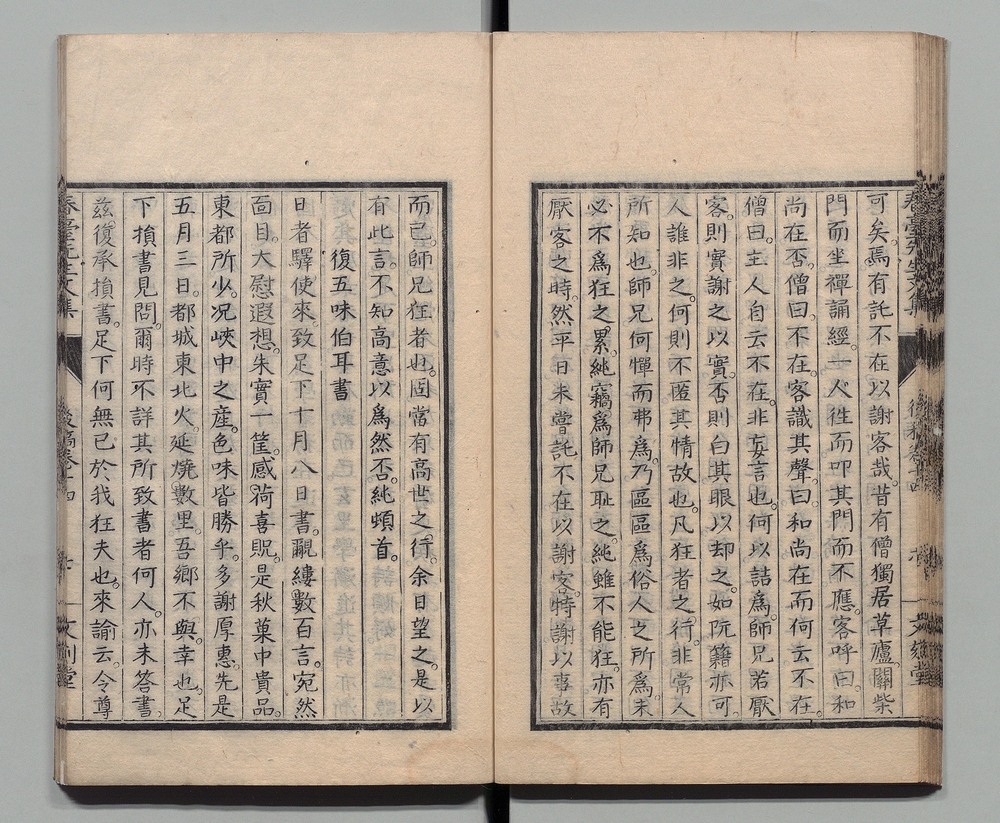 春臺先生文集 後稿卷十四 六 文刻堂
可矣。焉有託不在以謝客哉。昔有僧獨居草廬。關柴
門而坐禪誦經。一人徃而叩其門而不應。客呼曰。和
尚在否。僧曰。不在。客識其聲曰。和尚在而何云不在。
僧曰。主人自云不在。非妄言也。何以詰爲。師兄若厭
客。則實謝之以實。否則白其眼以却之。如阮籍亦可。
人誰非之。何則不匿其情故也。凡狂者之行。非常人
所知也。師兄何憚而弗爲。乃區區爲俗人之所爲。未
必不爲狂之累。純竊爲師兄耻之。純雖不能狂。亦有
厭客之時。然平日未嘗託不在以謝客。特謝以事故
而已。師兄狂者也。固當有高世之行。余日望之。是以
有此言。不知高意以爲然否。純頓首。
復五味伯耳書
日者驛使來。致足下十月八日書。覼縷數百言。宛然
面目。大慰遐想。朱實一筐。感荷喜貺。是秋菓中貴品。
東都所少。况峽中之産。色味皆勝乎。多謝厚惠。先是
五月三日。都城東北火。延燒數里。吾鄉不與。幸也。足
下損書見問。爾時不詳其所致書者何人。亦未答書。
茲復承損書。足下何無已於我狂夫也。來諭云。令尊
春臺先生文集 後稿卷十四 七 文刻堂